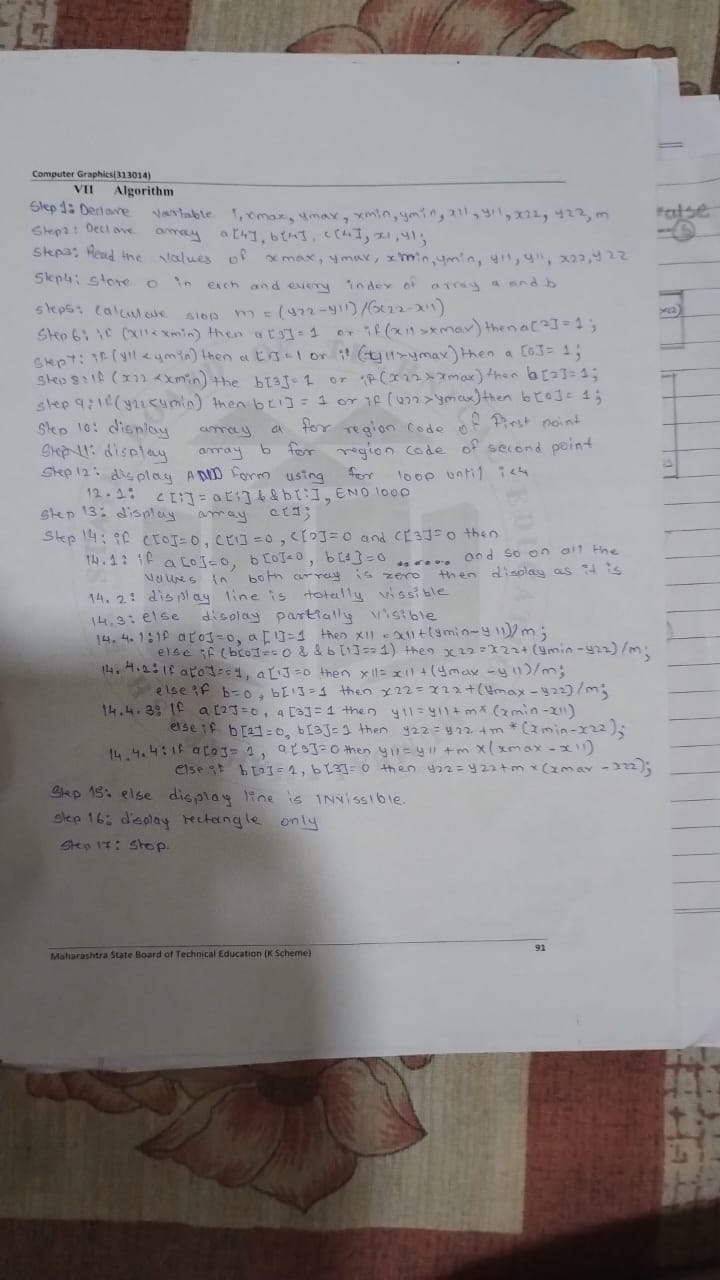 Computer Graphics(313014)
VII Algorithm
Step 1: Declare variable i, xmax, ymax, xmin, ymin, x11, y11, x22, y22, m
Step2: Declare array a[4], b[4], c[4], x1, y1;
Step3: Read the values of xmax, ymax, xmin, ymin, y11, y11, x22, y22
Step4: store 0 in each and every index of array a and b
step5: calculate slop m = (y22-y11)/(x22-x11)
Step 6: if (x11<xmin) then a[3]=1 or if (x11>xmax) then a[2]=1;
Step7: if (y11<ymin) then a[1]=1 or if (y11>ymax) then a[0]=1;
Step 8: if (x22<xmin) the b[3]=1 or if (x22>xmax) then b[2]=1;
step 9: if (y22<ymin) then b[1]=1 or if (y22>ymax) then b[0]=1;
Step 10: display array a for region code of first point
Step 11: display array b for region code of second point
Step 12: display AND form using for loop until i<4
12.1: c[i] = a[i] && b[i], END loop
Step 13: display array c[];
Step 14: if c[0]=0, c[1]=0, c[2]=0 and c[3]=0 then
14.1: if a[0]=0, b[0]=0, b[1]=0 ....... and so on all the
values in both array is zero then display as it is
14.2: display line is totally vissible
14.3: else display partially visible
14.4.1: if a[0]=0, a[1]=1 then x11 = x11+(ymin-y11)/m;
else if (b[0]==0 && b[1]==1) then x22=x22+(ymin-y22)/m;
14.4.2: if a[0]==1, a[1]=0 then x11= x11+(ymax-y11)/m;
else if b=0, b[1]=1 then x22=x22+(ymax-y22)/m;
14.4.3: If a[2]=0, a[3]=1 then y11=y11+m*(xmin-x11)
else if b[2]=0, b[3]=1 then y22=y22+m*(xmin-x22);
14.4.4: if a[2]=1, a[3]=0 then y11=y11+m x(xmax-x11)
else if b[2]=1, b[3]=0 then y22=y22+m x(xmax-x22);
Step 15: else display line is INvissible.
step 16: display rectangle only
Step 17: Stop.
Maharashtra State Board of Technical Education (K Scheme)
91
false